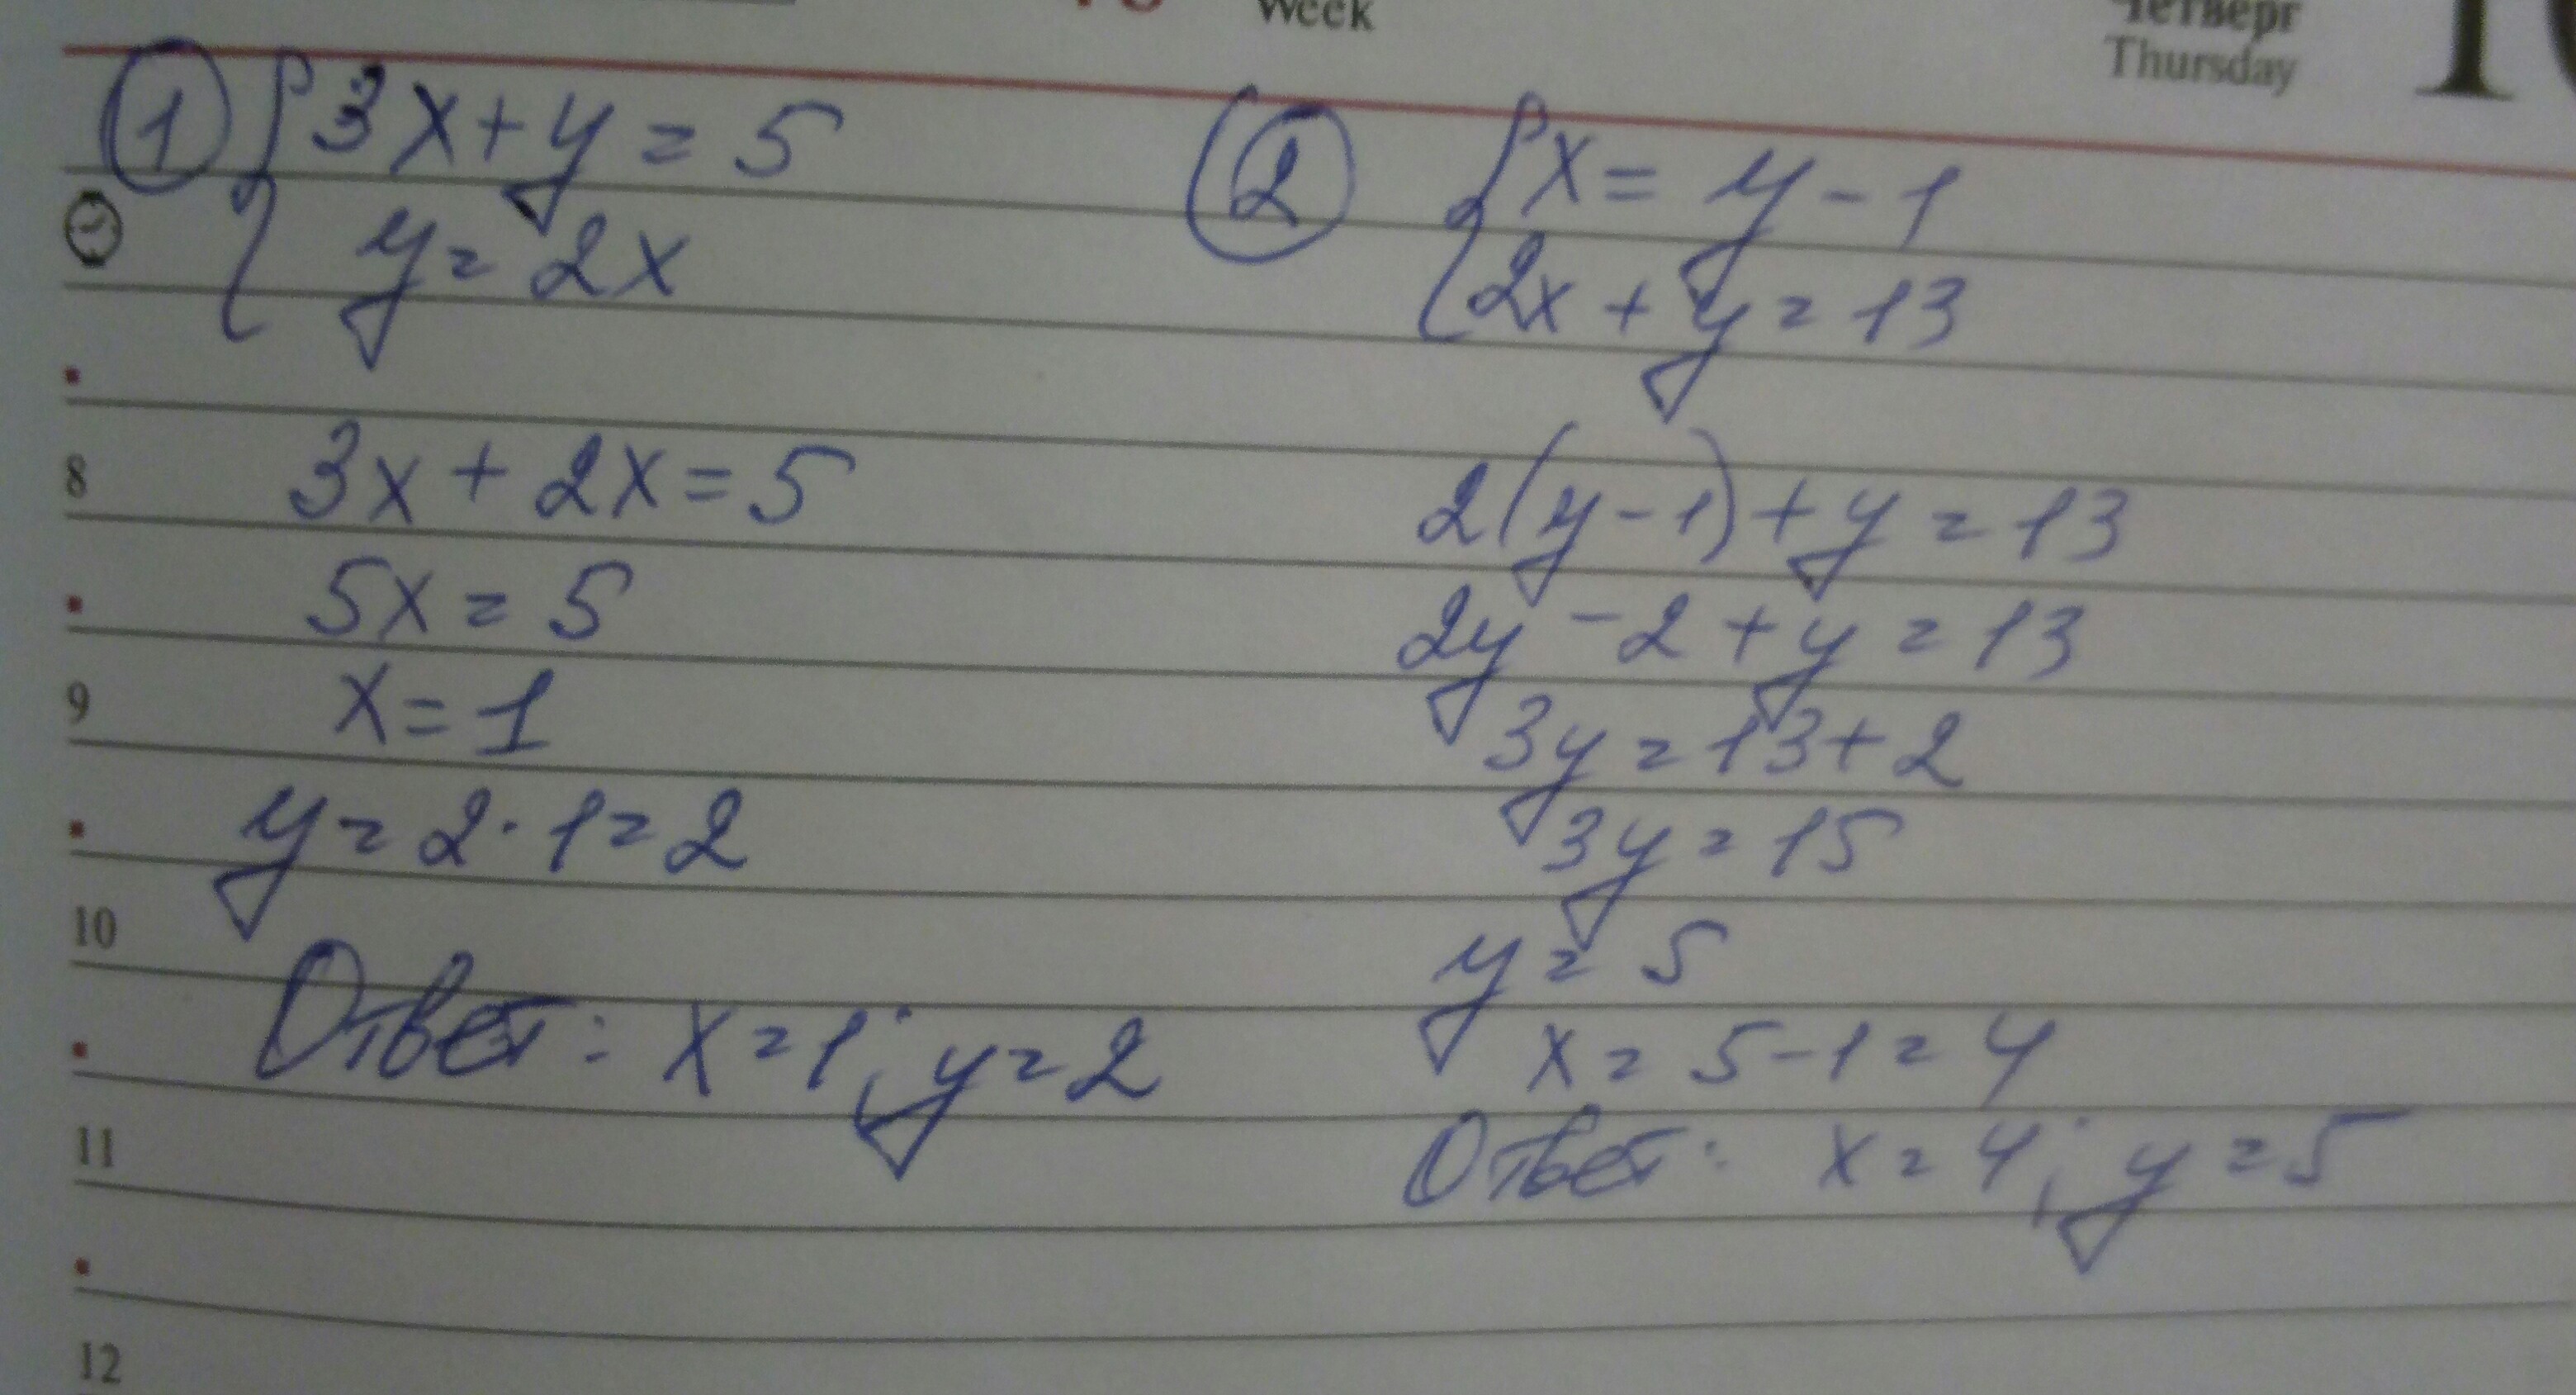 Week
Четверг
Thursday
1 { 3x+y=5
y=2x
3x+2x=5
5x=5
x=1
y=2·1=2
Ответ: x=1; y=2
2 { x=y-1
2x+y=13
2(y-1)+y=13
2y-2+y=13
3y=13+2
3y=15
y=5
x=5-1=4
Ответ: x=4; y=5
8
9
10
11
12